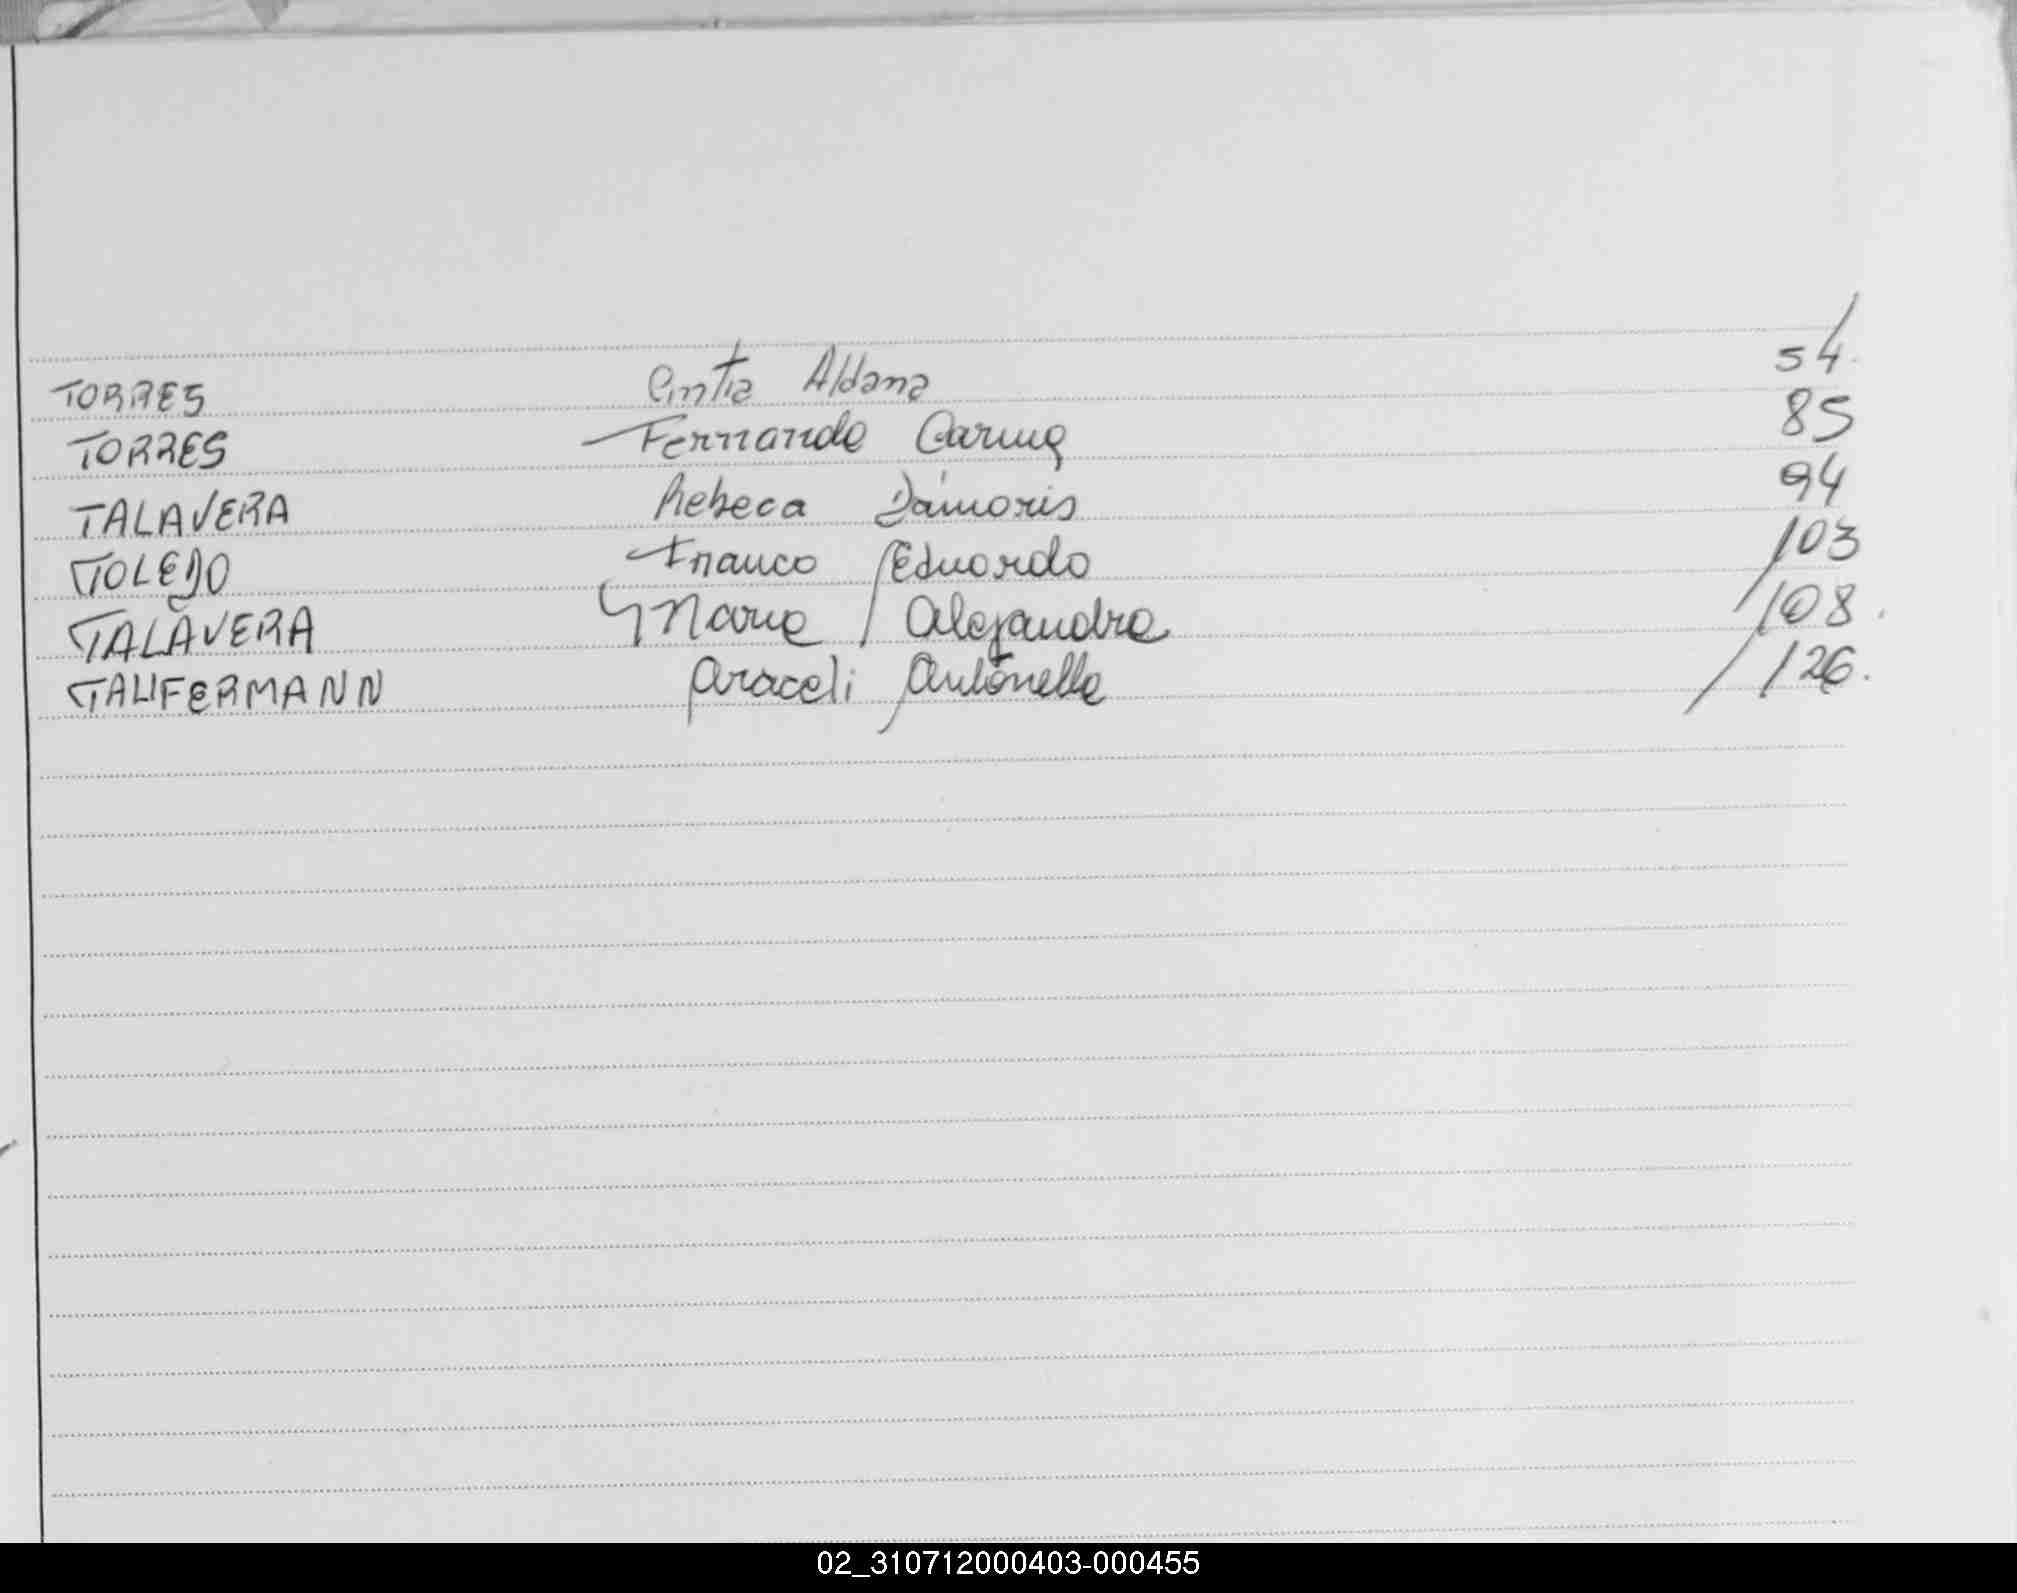 TORRES Cintia Aldana 54
TORRES Fernanda Carina 85
TALAVERA Rebeca Dámaris 94
TOLEDO Franco Eduardo 103
TALAVERA Maria Alejandra 108.
TAUFERMANN Araceli Antonella 126.
02_310712000403-000455